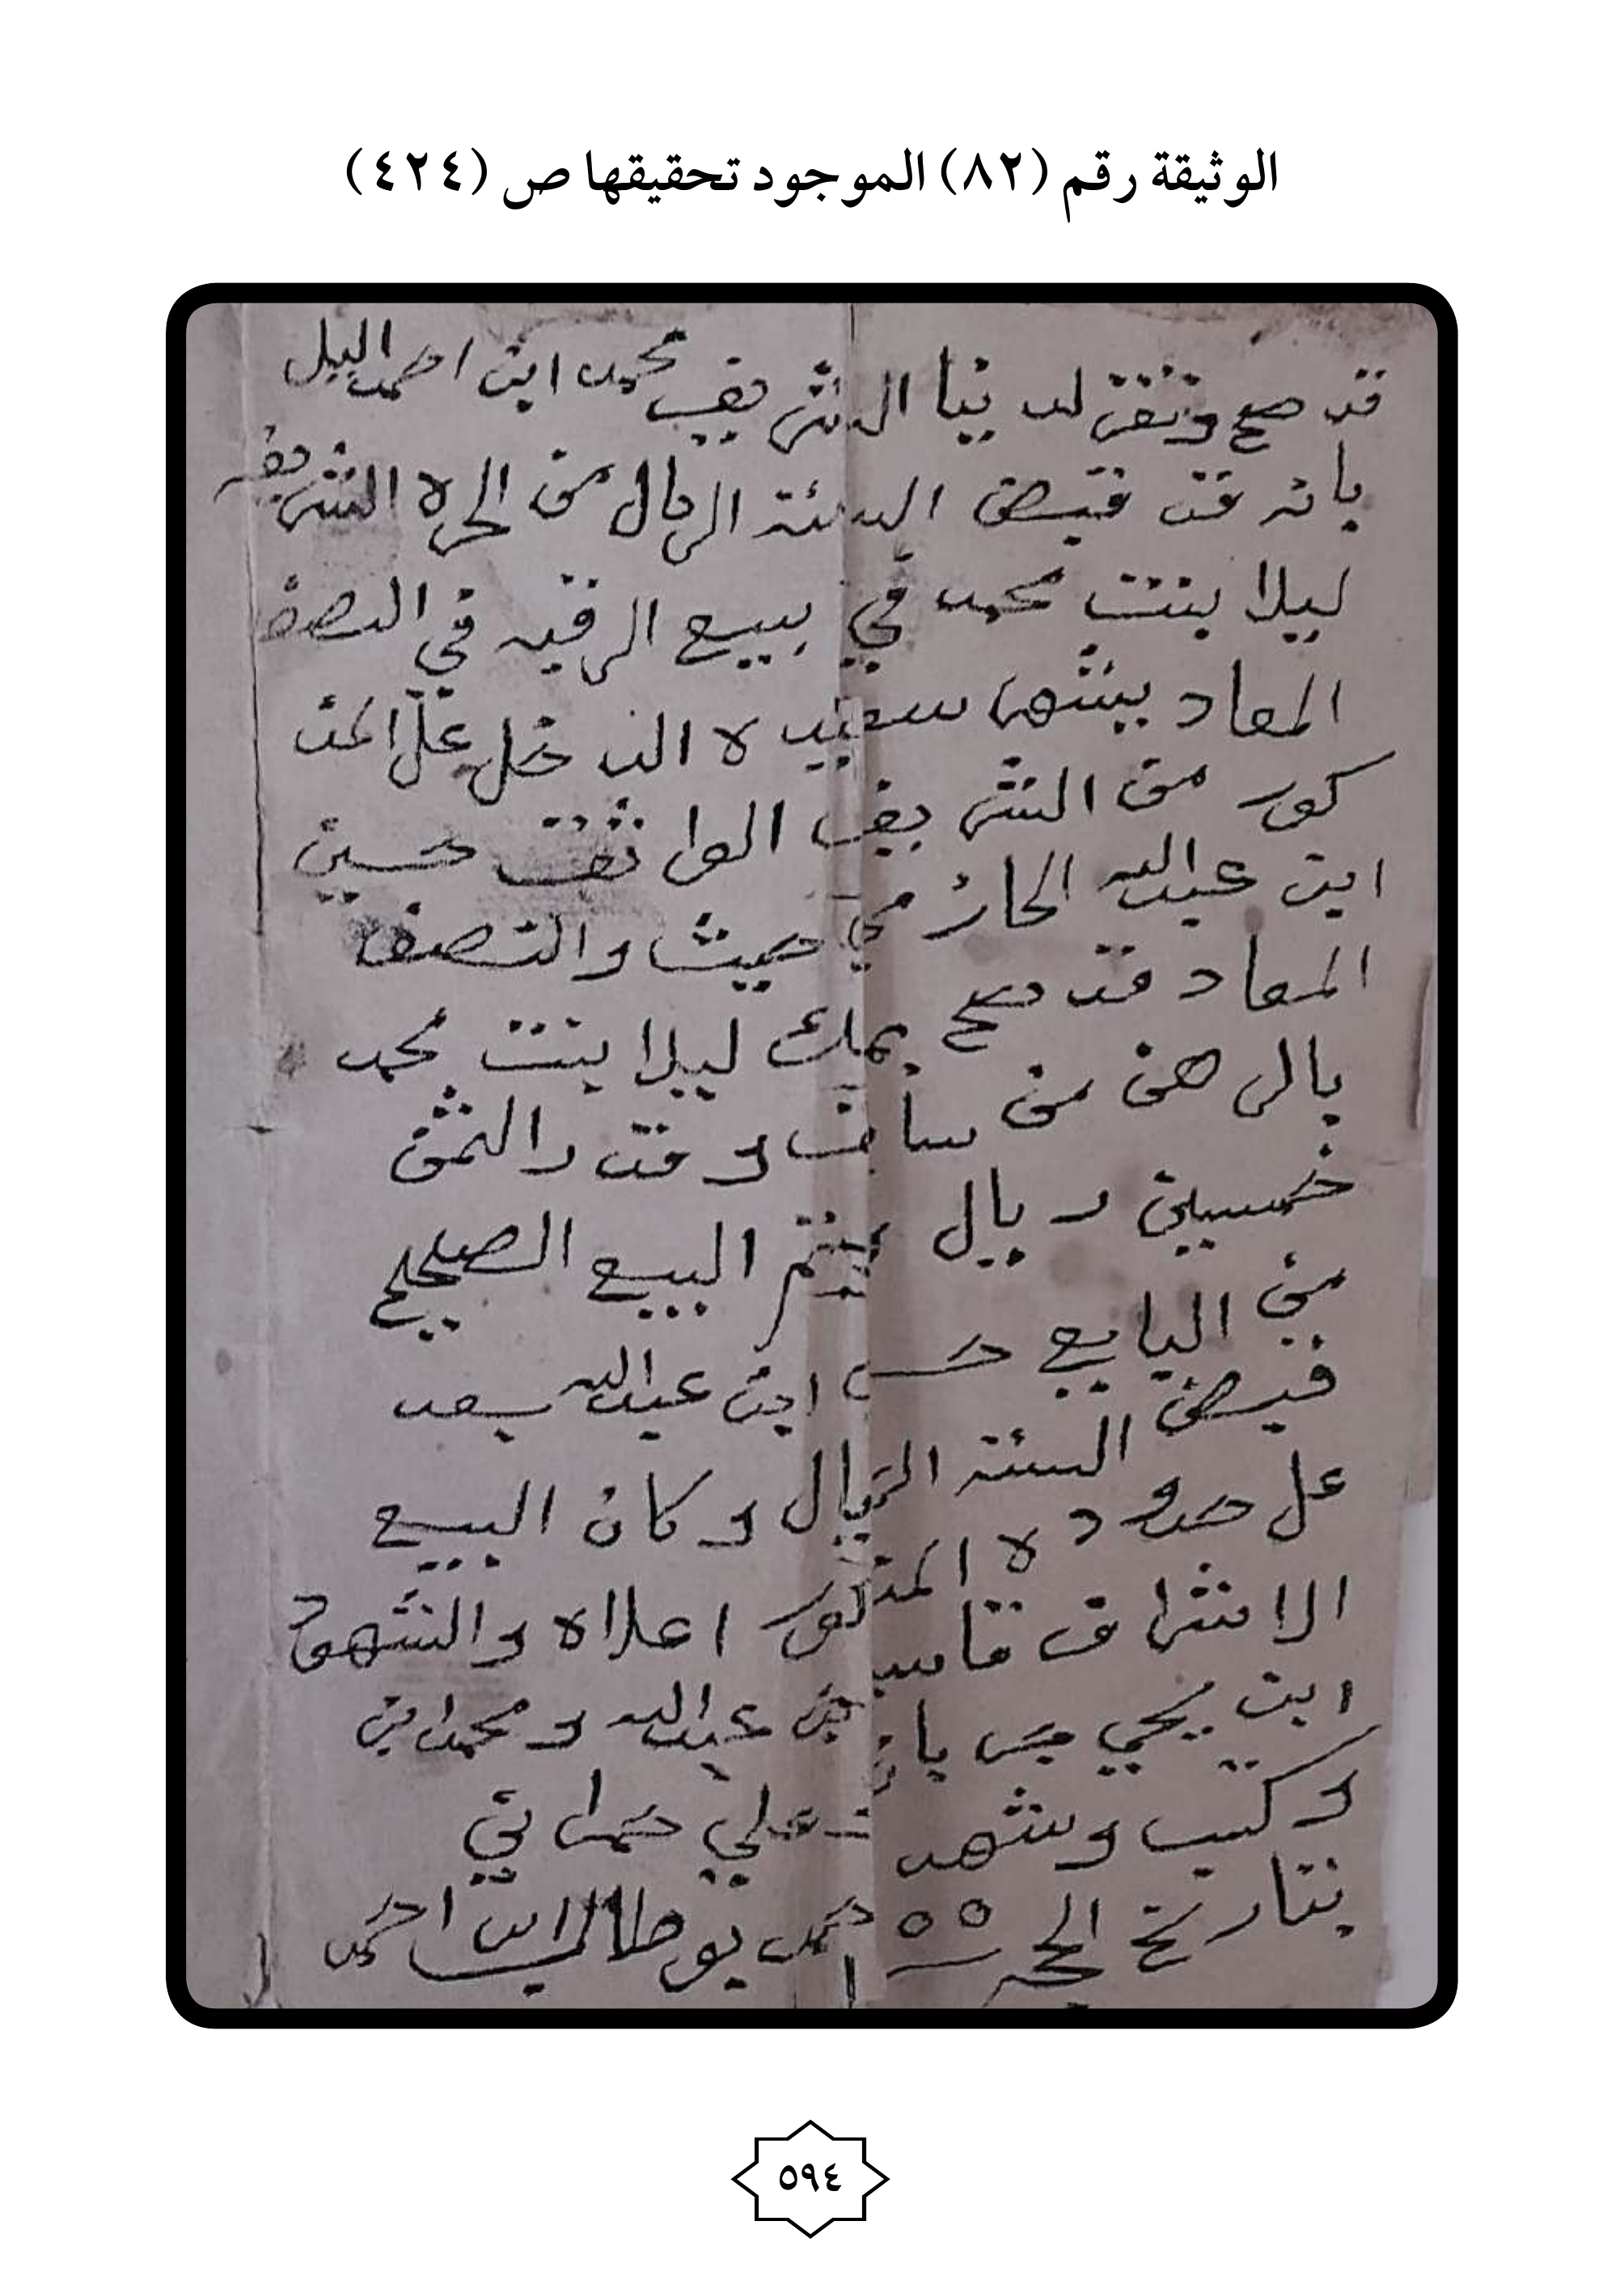 الوثيقة رقم (٨٢) الموجود تحقيقها ص (٤٢٤)
قد صح وتقرر لدينا الشريف محمد ابن احمد البيل
بانه قد قبض الستة الريال من الحره الشريفه
ليلا بنت محمد في بييع الرقبه في النصف
المعاد بيشهر سعيده الدخل على المذ
كور من الشريف الواثق حسين
ابن عبدالله الحازمي حيث والنصف
المعاد قد صح بملك ليلا بنت محمد
بالرهن من سابق وقد والثمن
خمسين ريال البيع الصحيح
من البايع حسين ابن عبدالله بعد
قبض الستة الريال وكان البيع
على حدوده المذكور اعلاه والشهود
الاشراف قاسم بن عبدالله ومحمد ابن
ابن يحيى علي حمراني
وكتب وشهد حمد بوطالب ابن احمد
بتاريخ الحجه ٥٥
٥٩٤